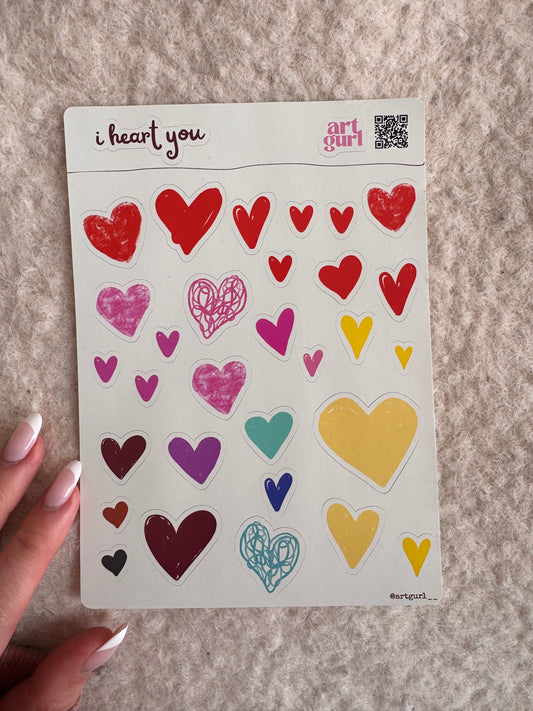 i heart you
art
gurl
@artgurl__